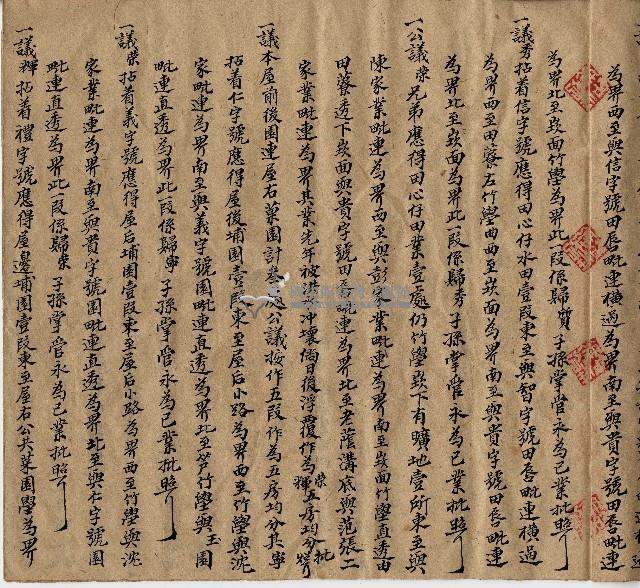 為界西至與信字號田唇毗連橫過為界南至與貴字號田唇毗連
為界北至崁面竹壆為界此一段係歸質子孫掌管永為己業批照
一議秀拈着信字號應得田心仔水田壹段東至與智字號田唇毗連橫過
為界西至田簝左竹壆面西至崁面為界南至與貴字號田唇毗連
為界北至崁面為界此一段係歸秀子孫掌管永為己業批照
一公議榮兄弟應得田心仔田業壹處仍竹壆崁下有曠地壹所東至與
陳家業毗連為界西至與彭家業毗連為界南至崁面竹壆直透由
田簝透下崁面與貴字號田唇毗連為界北至老蔭溝底與范張二
家業毗連為界其業先年被冲壞倘日後浮覆作為榮輝五房均分批
一議本屋前後園連屋右菓園計公議按作五段作為五房均分其寧
拈着仁字號應得屋後埔園壹段東至屋后小路為界西至竹壆與沈
家毗連直透為界南至與義字號園毗連直透為界北至竹壆與玉園
毗連直透為界此一段係歸寧子孫掌管永為己業批照
一議榮拈着義字號應得屋后埔園壹段東至屋后小路為界西至竹壆與沈
家業毗連為界南至與貴字號園毗連直透為界北至與仁字號園
毗連直透為界此一段係歸榮子孫掌管永為己業批照
一議輝拈着禮字號應得屋邊埔園壹段東至屋右公共菜園壆為界